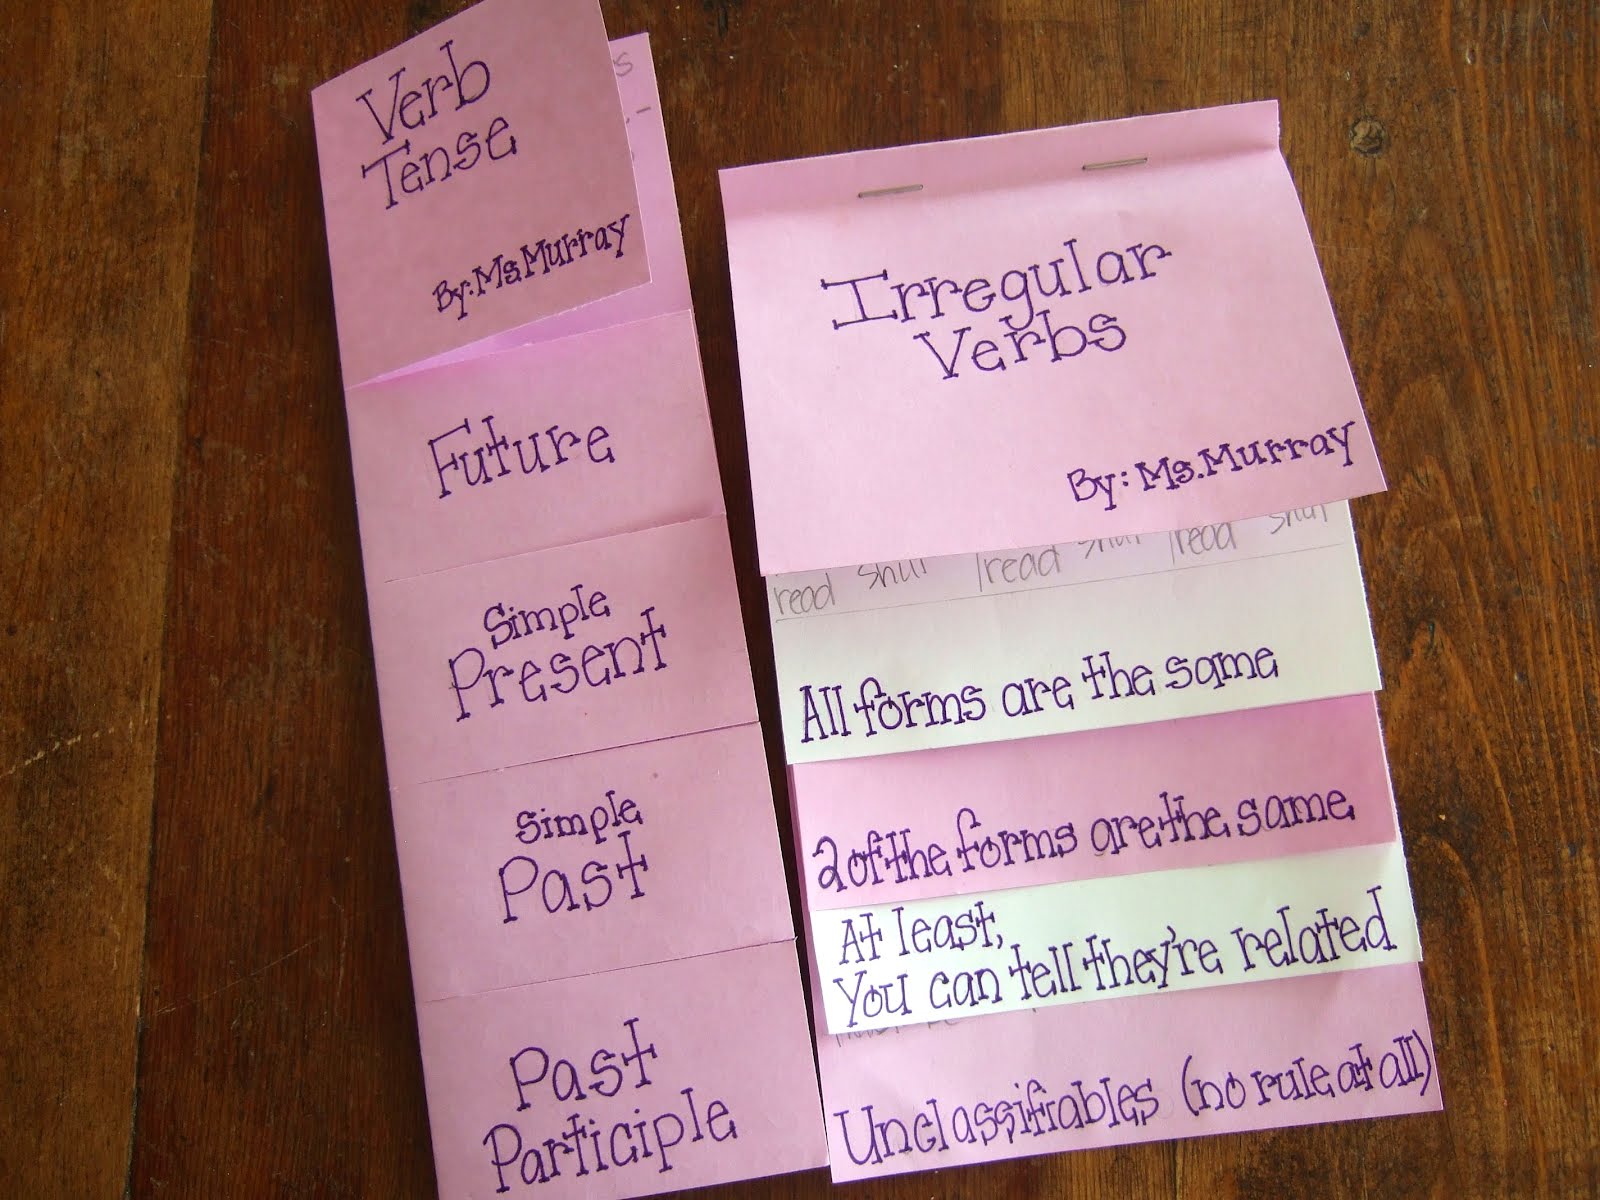 Verb
Tense
By: Ms Murray
Future
Simple
Present
Simple
Past
Past
Participle
Irregular
Verbs
By: Ms. Murray
read shut read shut read shut
All forms are the same
2 of the forms are the same
At least,
You can tell they're related
Unclassifiables (no rule at all)